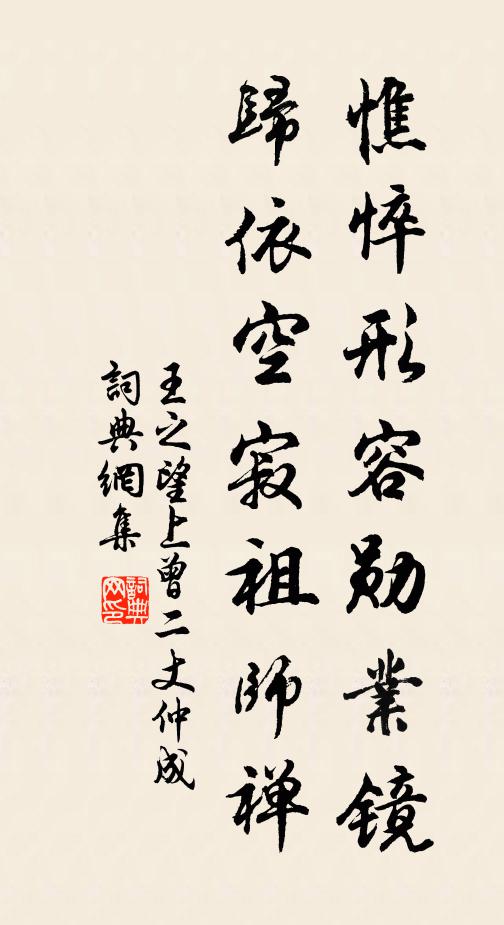 憔悴形容勋業镜
歸依空寂祖師禅
王之望上曾二丈仲成
詞典網集
詞典
网印